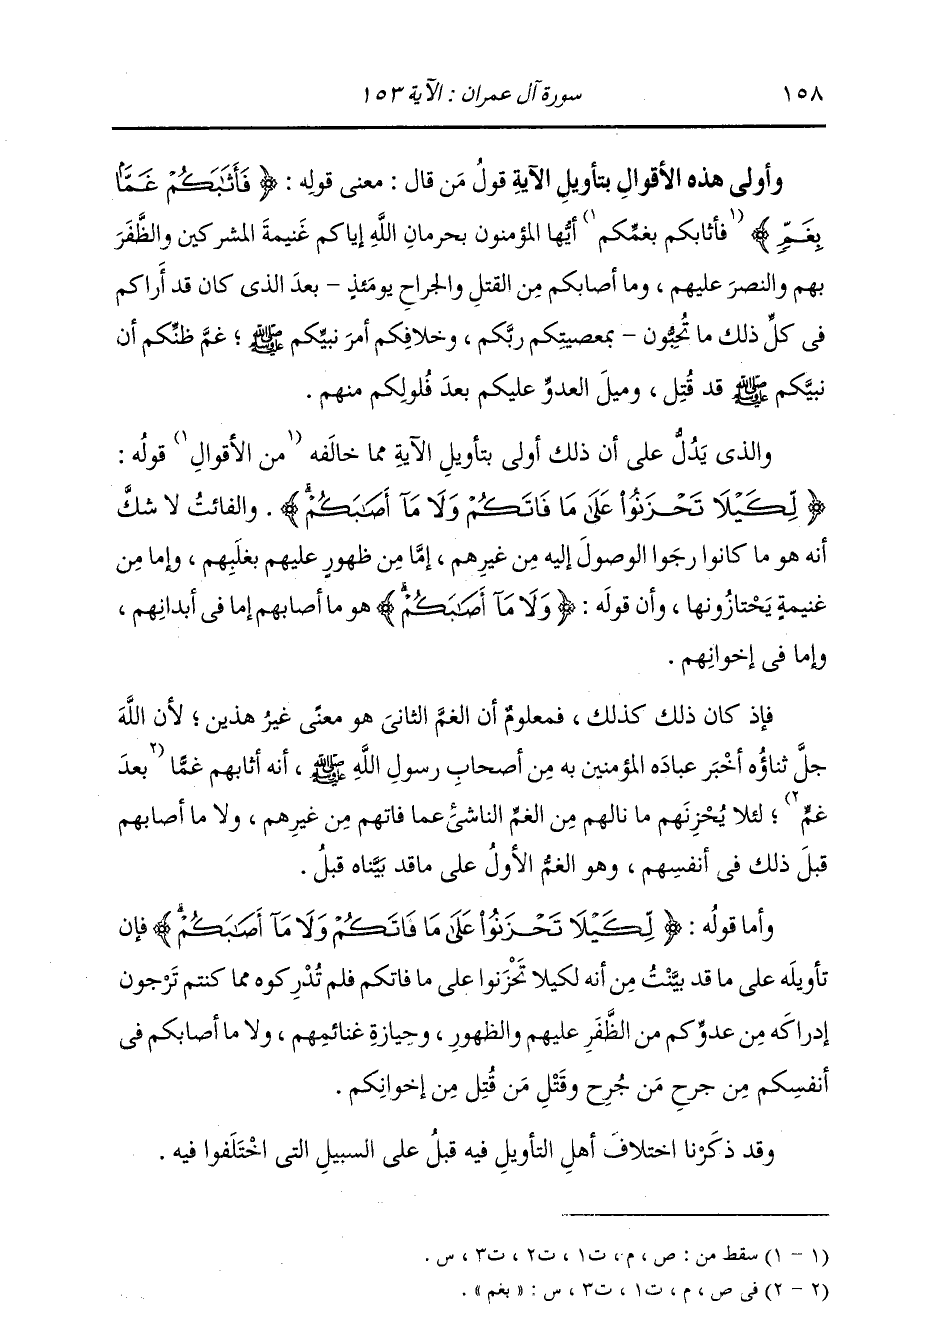 ١٥٨ سورة آل عمران : الآية ١٥٣
وأولى هذه الأقوالِ بتأويلِ الآيةِ قولُ مَن قال : معنى قولِه : ﴿ فَأَثَٰبَكُمْ غَمًّۢا
بِغَمٍّ ﴾ (١ فأثابكم بغمِّكم ١) أيُّها المؤمنون بحرمانِ اللَّهِ إياكم غَنيمةَ المشركين والظَّفَرَ
بهم والنصرَ عليهم ، وما أصابكم مِن القتلِ والجراحِ يومَئذٍ - بعدَ الذى كان قد أَراكم
فى كلِّ ذلك ما تُحِبُّون - بمعصيتِكم ربَّكم ، وخلافِكم أمرَ نبيِّكم ﷺ ؛ غمَّ ظنِّكم أن
نبيَّكم ﷺ قد قُتِل ، وميلَ العدوِّ عليكم بعدَ فُلولِكم منهم .
والذى يَدُلُّ على أن ذلك أولى بتأويلِ الآيةِ مما خالَفه (١ من الأقوالِ ١) قولُه :
﴿ لِّكَيْلَا تَحْزَنُوا۟ عَلَىٰ مَا فَاتَكُمْ وَلَا مَآ أَصَٰبَكُمْ ۗ ﴾ . والفائتُ لا شكَّ
أنه هو ما كانوا رجَوا الوصولَ إليه مِن غيرِهم ، إمَّا مِن ظهورٍ عليهم بغلَبِهم ، وإما مِن
غنيمةٍ يَحْتازُونها ، وأن قولَه : ﴿ وَلَا مَآ أَصَٰبَكُمْ ۗ ﴾ هو ما أصابهم إما فى أبدانِهم ،
وإما فى إخوانِهم .
فإذ كان ذلك كذلك ، فمعلومٌ أن الغمَّ الثانىَ هو معنًى غيرُ هذين ؛ لأن اللَّهَ
جلَّ ثناؤُه أخْبَر عبادَه المؤمنين به مِن أصحابِ رسولِ اللَّهِ ﷺ ، أنه أثابهم غمًّا (٢ بعدَ
غمٍّ ٢) ؛ لئلا يُحْزِنَهم ما نالهم مِن الغمِّ الناشئِ عما فاتهم مِن غيرِهم ، ولا ما أصابهم
قبلَ ذلك فى أنفسِهم ، وهو الغمُّ الأولُ على ماقد بَيَّناه قبلُ .
وأما قولُه : ﴿ لِّكَيْلَا تَحْزَنُوا۟ عَلَىٰ مَا فَاتَكُمْ وَلَا مَآ أَصَٰبَكُمْ ۗ ﴾ فإن
تأويلَه على ما قد بيَّنْتُ مِن أنه لكيلا تَحْزَنوا على ما فاتكم فلم تُدْرِكوه مما كنتم تَرْجون
إدراكَه مِن عدوِّكم من الظَّفَرِ عليهم والظهورِ ، وحِيازةِ غنائمِهم ، ولا ما أصابكم فى
أنفسِكم مِن جرحِ مَن جُرِح وقَتْلِ مَن قُتِل مِن إخوانِكم .
وقد ذكَرْنا اختلافَ أهلِ التأويلِ فيه قبلُ على السبيلِ التى اخْتَلَفوا فيه .
(١ - ١) سقط من : ص ، م ، ت١ ، ت٢ ، ت٣ ، س .
(٢ - ٢) فى ص ، م ، ت١ ، ت٣ ، س : « بغم » .